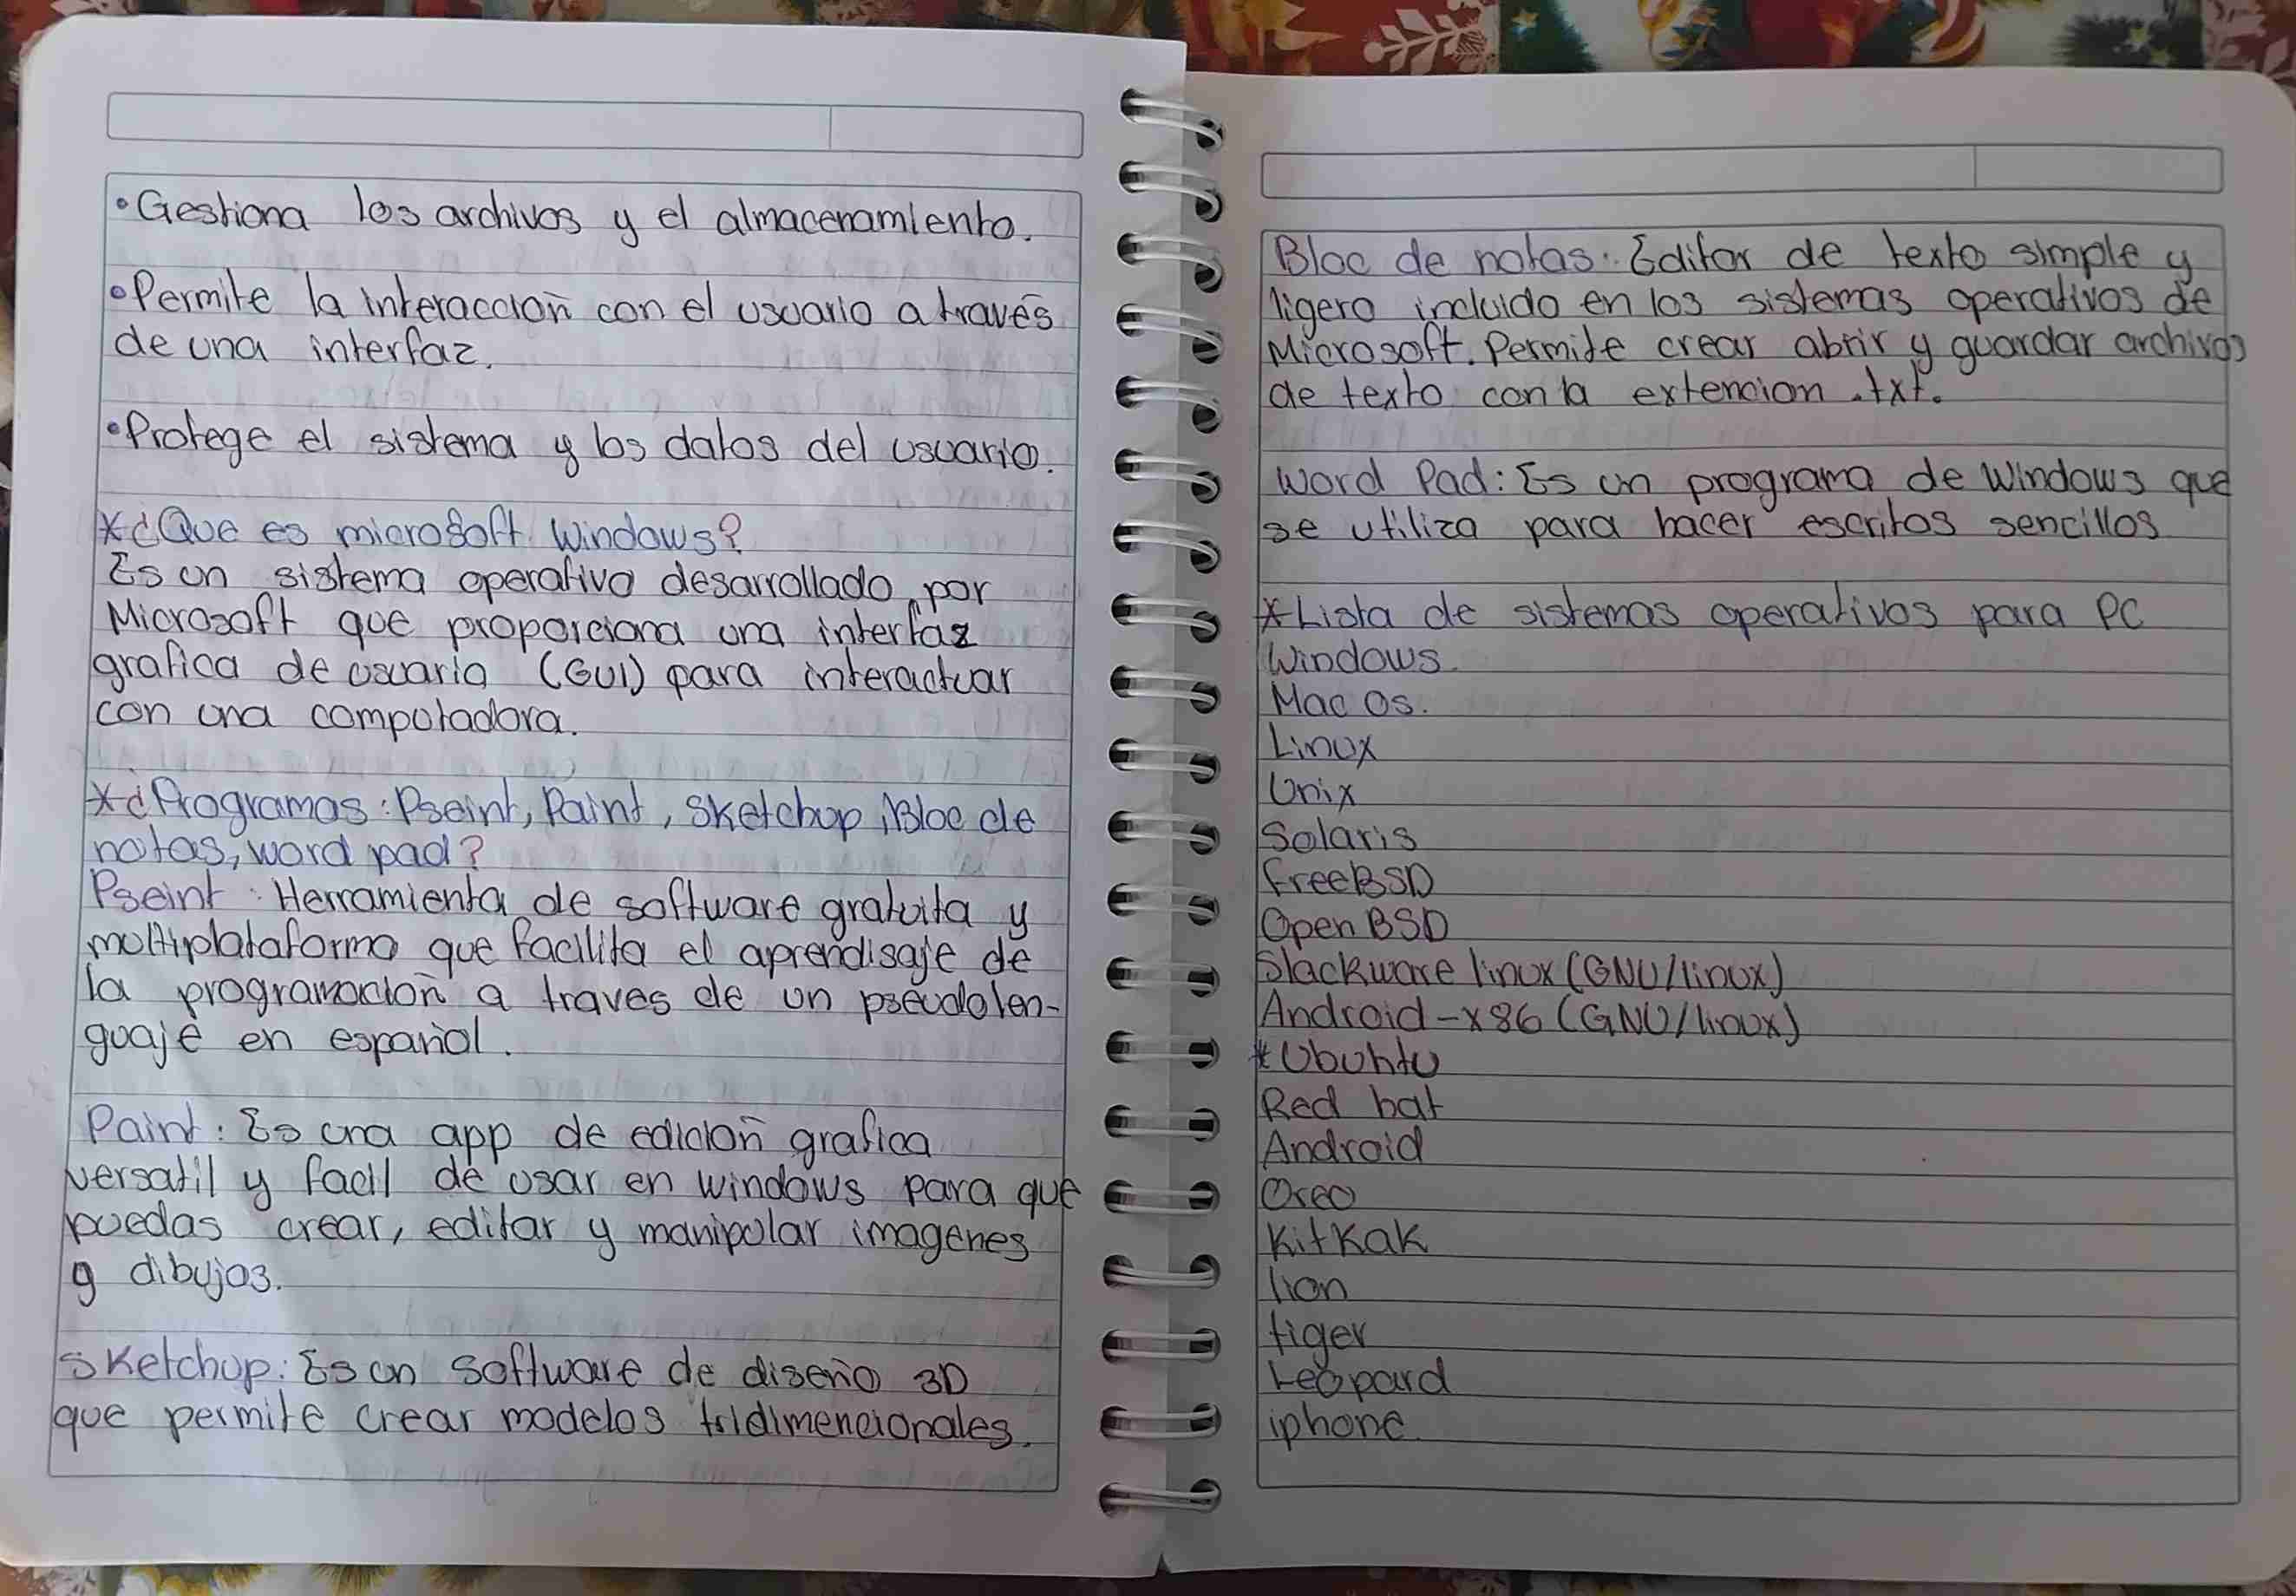 •Gestiona los archivos y el almacenamiento.
•Permite la interacción con el usuario a través
de una interfaz.
•Protege el sistema y los datos del usuario.
*¿Que es microsoft Windows?
Es un sistema operativo desarrollado por
Microsoft que proporciona una interfaz
grafica de usuario (GUI) para interactuar
con una computadora.
*¿Programas: Pseint, Paint, Sketchup, Bloc de
notas, word pad?
Pseint: Herramienta de software gratuita y
multiplataforma que facilita el aprendisaje de
la programación a traves de un pseudolen-
guaje en español.
Paint: Es una app de edición grafica
versatil y facil de usar en windows para que
puedas crear, editar y manipular imagenes
y dibujos.
Sketchup: Es un software de diseño 3D
que permite crear modelos tridimencionales.
Bloc de notas: Editor de texto simple y
ligero incluido en los sistemas operativos de
Microsoft. Permite crear abrir y guardar archivos
de texto con la extencion .txt.
Word Pad: Es un programa de Windows que
se utiliza para hacer escritos sencillos
*Lista de sistemas operativos para PC
Windows.
Mac Os.
Linux
Unix
Solaris
FreeBSD
Open BSD
Slackware linux (GNU/linux)
Android-x86 (GNU/linux)
*Ubuntu
Red hat
Android
Oreo
KitKak
lion
tiger
Leopard
iphone.